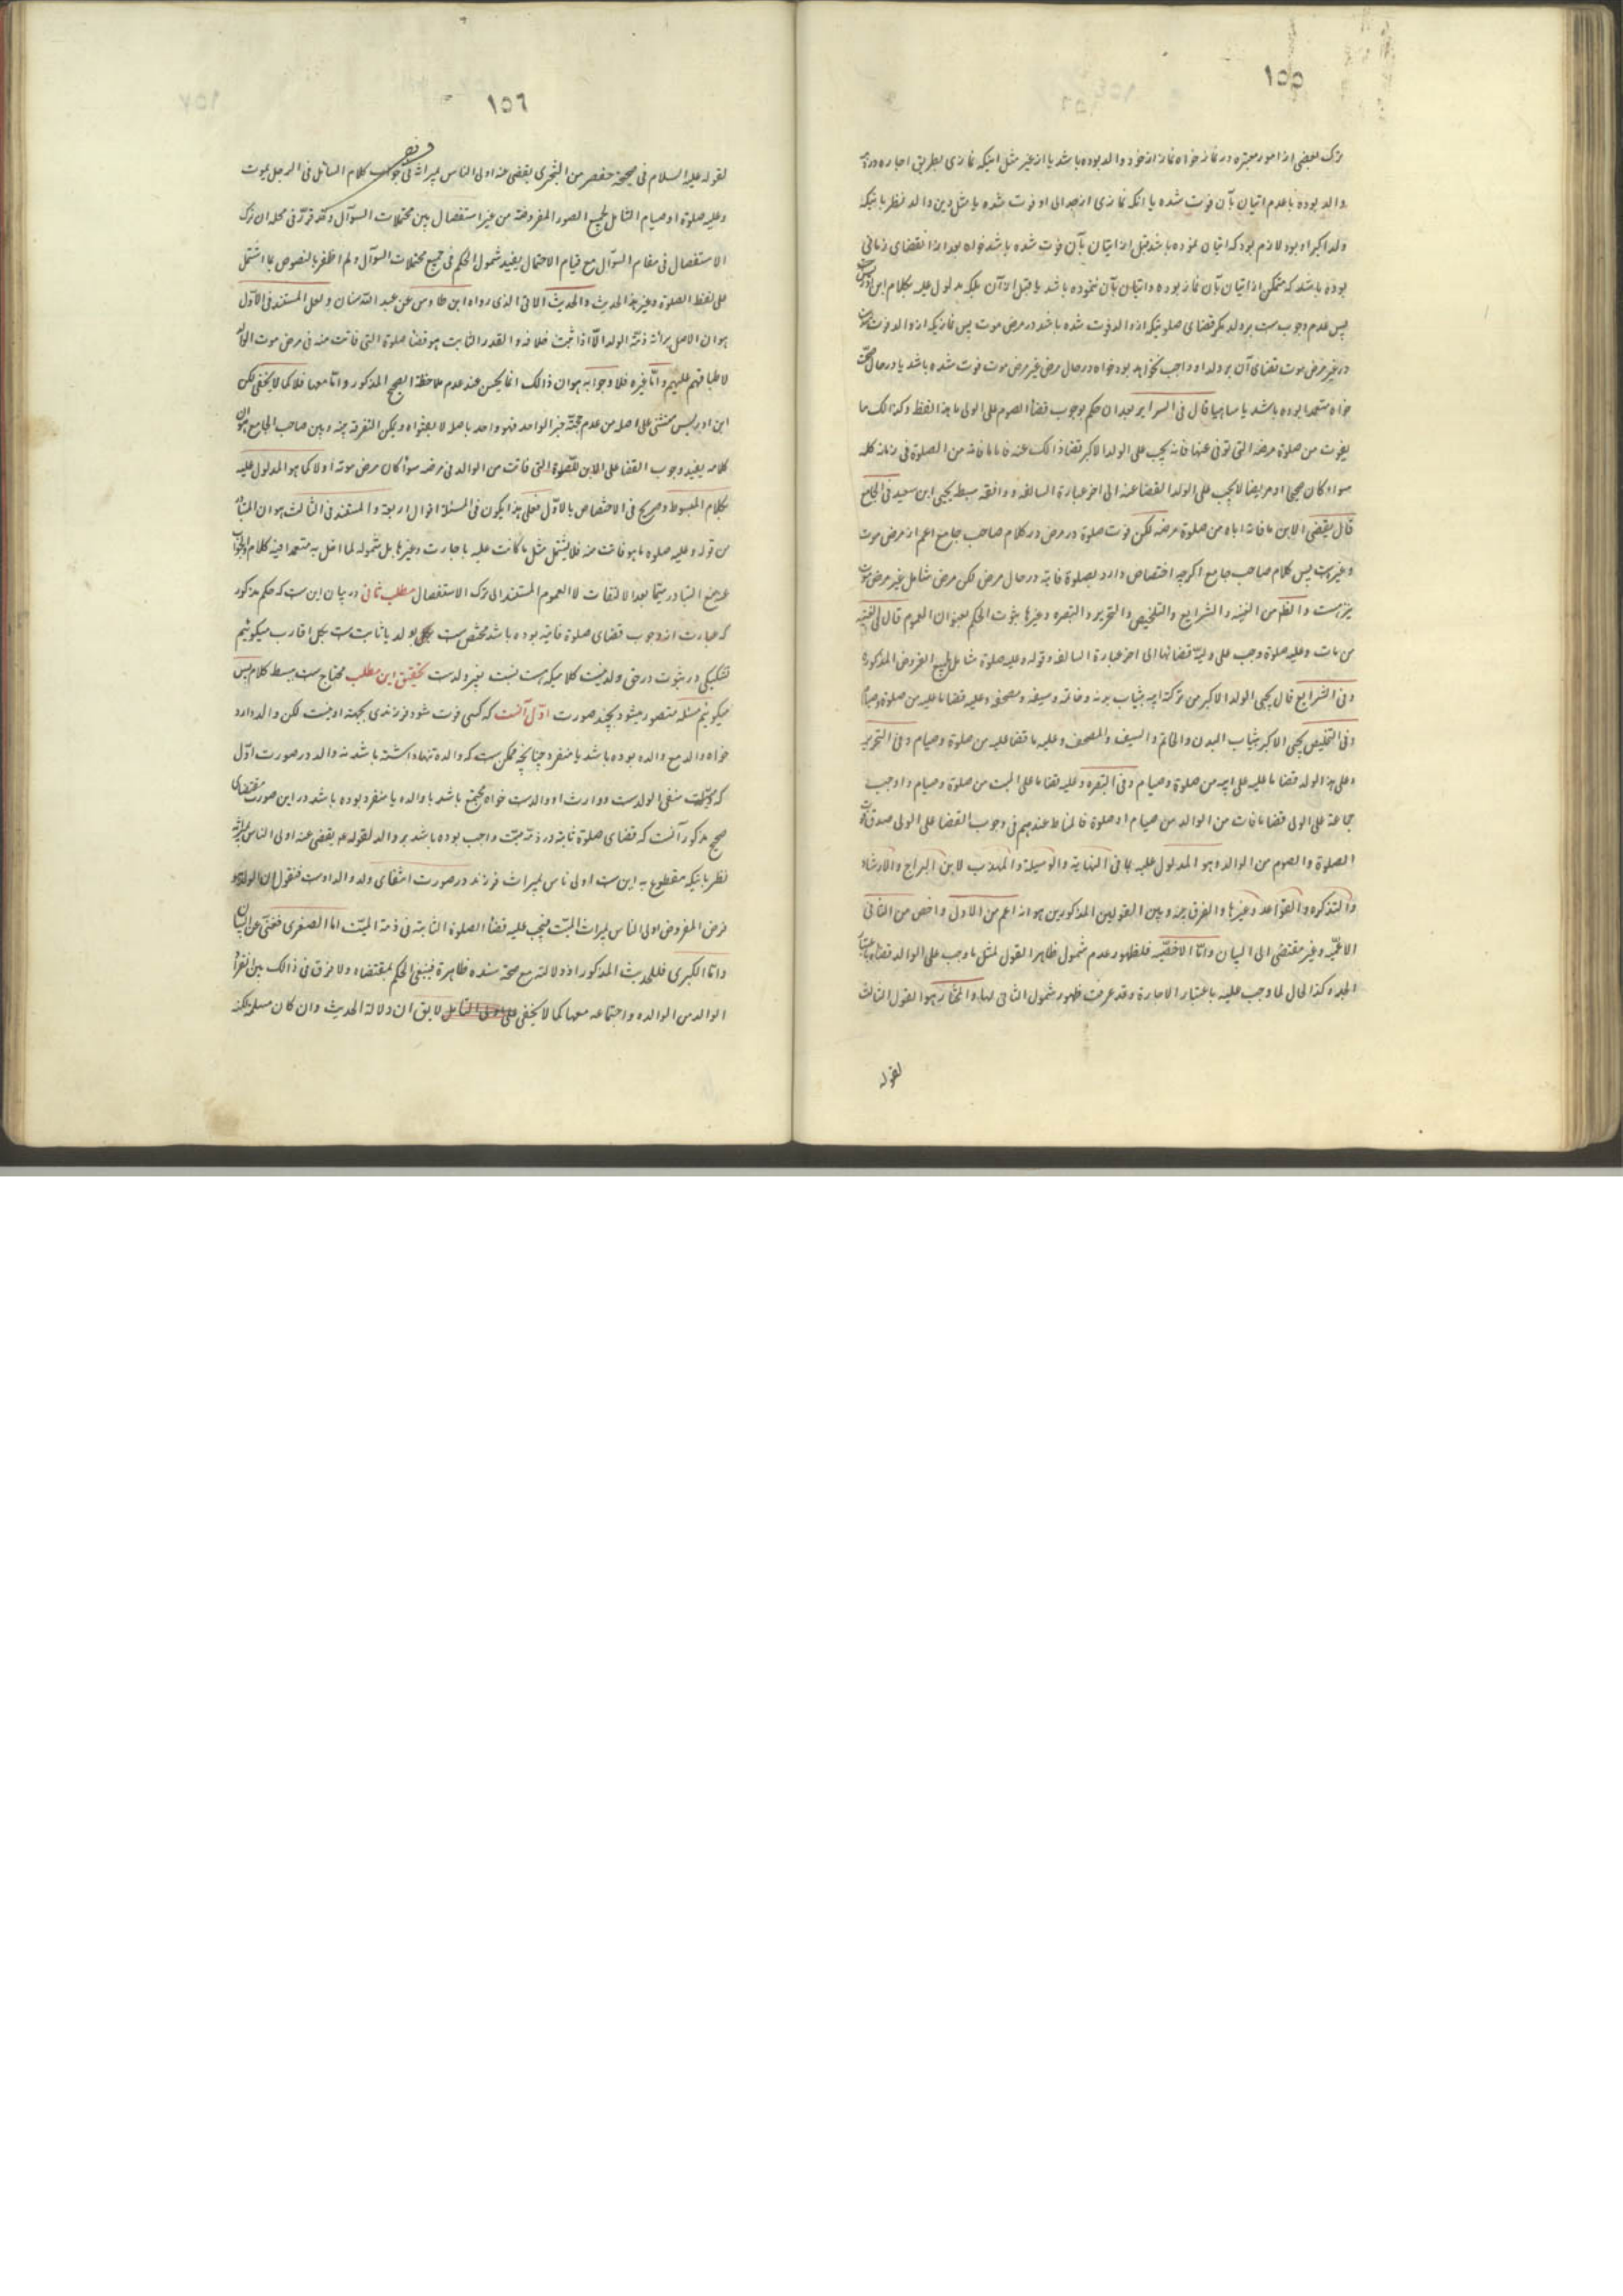 ١٥٥
ترک بعضی از امور معتبره در نماز خواه نماز از خود والد بوده باشد یا از غیر مثل اینکه نمازی بطریق اجاره در ذمه
والد بوده با عدم اتیان بآن فوت شده یا انکه نمازی از جد الی او فوت شده یا مثل دین والد نظر باینکه
ولد اکبر او بود لازم بود که اتیان نموده باشد قبل از اتیان بآن فوت شده باشد خواه بعد از انقضای زمانی
بوده باشد که متمکن از اتیان بآن نماز بوده و اتیان بآن ننموده باشد یا قبل از آن بلکه مدلول علیه بکلام ابن ادریس
پس عدم وجوب ست بر ولد مگر قضای صلوتیکه از والد فوت شده باشد در مرض موت پس نمازیکه از والد فوت شده
در غیر مرض موت قضای آن بر ولد او واجب نخواهد بود خواه در حال مرض غیر مرض موت فوت شده باشد یا در حال صحت
خواه متعمدا بوده باشد یا ساهیا قال فی السرایر بعد ان حکم بوجوب قضاء الصوم علی الولی ما هذا لفظه وکذالک ما
یفوت من صلوة مرضه التی توفی عنها فانه یجب علی الولد الاکبر قضاء ذالک عنه فاما ما فاته من الصلوة فی زمانه کله
سواء کان صحیحا او مریضا لا یجب علی الولد القضا عنه الی اخر عبارة السالفه ووافقه سبط یحیی ابن سعید فی الجامع
قال یقضی الابن ما فات اباه من صلوة مرضه لکن فوت صلوة در مرض در کلام صاحب جامع اعم از مرض موت
و غیرست پس کلام صاحب جامع اکرچه اختصاص دارد بصلوة فایته در حال مرض لکن مرض شامل غیر مرض موت
نیز هست والظ من الغنیه والشرایع والتلخیص والتحریر والتبصره وغیرها ثبوت الحکم بعنوان العموم قال فی الغنیه
من مات وعلیه صلوة وجب علی ولیه قضائها الی اخر عبارة السالفه وقوله وعلیه صلوة شامل لجمیع الفروض المذکوره
وفی الشرایع قال یحبی الولد الاکبر من ترکة ابیه بثیاب بدنه وخاتمه وسیفه ومصحفه وعلیه قضاء ما علیه من صلوة وصیام
وفی التلخیص یحبی الاکبر بثیاب البدن والخاتم والسیف والمصحف وعلیه ما قضا علیه من صلوة وصیام وفی التحریر
وعلی هذا الولد قضاء ما علیه علی ابیه من صلوة وصیام وفی التبصره وعلیه قضاء ما علی المیت من صلوة وصیام واوجب
جماعة علی الولی قضاء ما فات من الوالد من صیام او صلوة فالمناط عندهم فی وجوب القضا علی الولی صدق فوت
الصلوة والصوم من الوالد هو المدلول علیه بما فی النهایة والوسیله والمهذب لابن البراج والارشاد
والتذکره والقواعد وغیرها والفرق بینه وبین القولین المذکورین هو انه اعم من الاول واخص من الثانی
الاعمیه غیر مقتضی الی البیان واما الاخصیه فلظهور عدم شمول ظاهرا القول لمثل ما وجب علی الوالد قضاه باعتبار
الجد وکذا الحال لما وجب علیه باعتبار الاجارة وقد عرفت ظهور شمول الثانی لها والمختار هو القول الثالث
لقوله
١٥٦
لقوله علیه السلام فی صحیحة حفص من البختری یقضی عنه اولی الناس بمیراثه فی جواب کلام السائل فی الرجل یموت
وعلیه صلوة او صیام الشامل لجمیع الصور المفروضة من غیر استفصال بین محتملات السوآل وقد قرر فی محله ان ترک
الاستفصال فی مقام السوآل مع قیام الاحتمال یفید شمول الحکم فی جمیع محتملات السوآل ولم اظفر بالنصوص ما اشتمل
علی لفظ الصلوة وغیر هذا الحدیث والحدیث الاتی الذی رواه ابن طاوس عن عبد الله سنان ولعل المستند فی الاول
هو ان الاصل برائة ذمة الولد الا اذا ثبت خلافه والقدر الثابت هو قضاء صلوة التی فاتت منه فی مرض موت الوالد
لاطباقهم علیهم واما غیره فلا وجوابه هو ان ذالک انما یحسن عند عدم ملاحظة الصحیح المذکور واما معها فلا کما لا یخفی لکن
ابن ادریس ممشی علی اصله من عدم حجیة خبر الواحد فهو واحد باصلا لا بفتواه ویمکن التفرقة بینه وبین صاحب الجامع هو ان
کلامه یفید وجوب القضا علی الابن للصلوة التی فاتت من الوالد فی مرضه سواء کان مرض موته او لا کما هو المدلول علیه
بکلام المبسوط وصریح فی الاختصاص بالاول فعلی هذا یکون فی المسئلة اقوال اربعة والمستند فی الثالث هو ان المتبادر
من قوله وعلیه صلوه ما هو فاتت منه فلا یشتمل مثل ما کانت علیه باجارت وغیرها بل شموله لما اخل به متعمدا فیه کلام والجواب
عنه منع التبادر سیما بعد الالتفات لا العموم المستند الی ترک الاستفصال مطلب ثانی در بیان این ست که حکم مذکور
که عبارت از وجوب قضای صلوة فایته بوده باشد مختص ست بولد یا ثابت ست بکل اقارب میکوئیم
تشکیکی در ثبوت در حق ولد نیست کلامیکه هست نسبت بغیر ولدست تحقیق این مطلب محتاج ست ببسط کلام پس
میکوئیم مسئله متصور میشود بچند صورت اول آنست که کسی فوت شود فرزندی بجهته او نیست لکن والد دارد
خواه والد مع والده بوده باشد یا منفرد چنانچه ممکن ست که والده تنها داشته باشد نه والد در صورت اول
که میت منفی الولدست و وارث او والدست خواه مجتمع باشد با والده یا منفرد بوده باشد در این صورت مقتضای
صحیح مذکور آنست که قضای صلوة ثابته در ذمه میت واجب بوده باشد بر والد لقوله عم یقضی عنه اولی الناس بمیراثه
نظر باینکه مقطوع به این ست اولی ناس بمیراث فرزند در صورت انتفای ولد والد اوست فنقول ان الوالد فی
فرض المفروض اولی الناس بمیراث المیت فیجب علیه قضاء الصلوة الثابته فی ذمة المیت اما الصغری فغنی عن البیان
واما الکبری فللحدیث المذکور اذ دلالته مع صحة سنده ظاهرة فینبغی الحکم بمقتضاه ولا فرق فی ذالک بین انفراد
الوالد من الوالده واجتماعه معها کما لا یخفی علی اولی التامل لا یق ان دلالة الحدیث وان کان مسلم لکنه